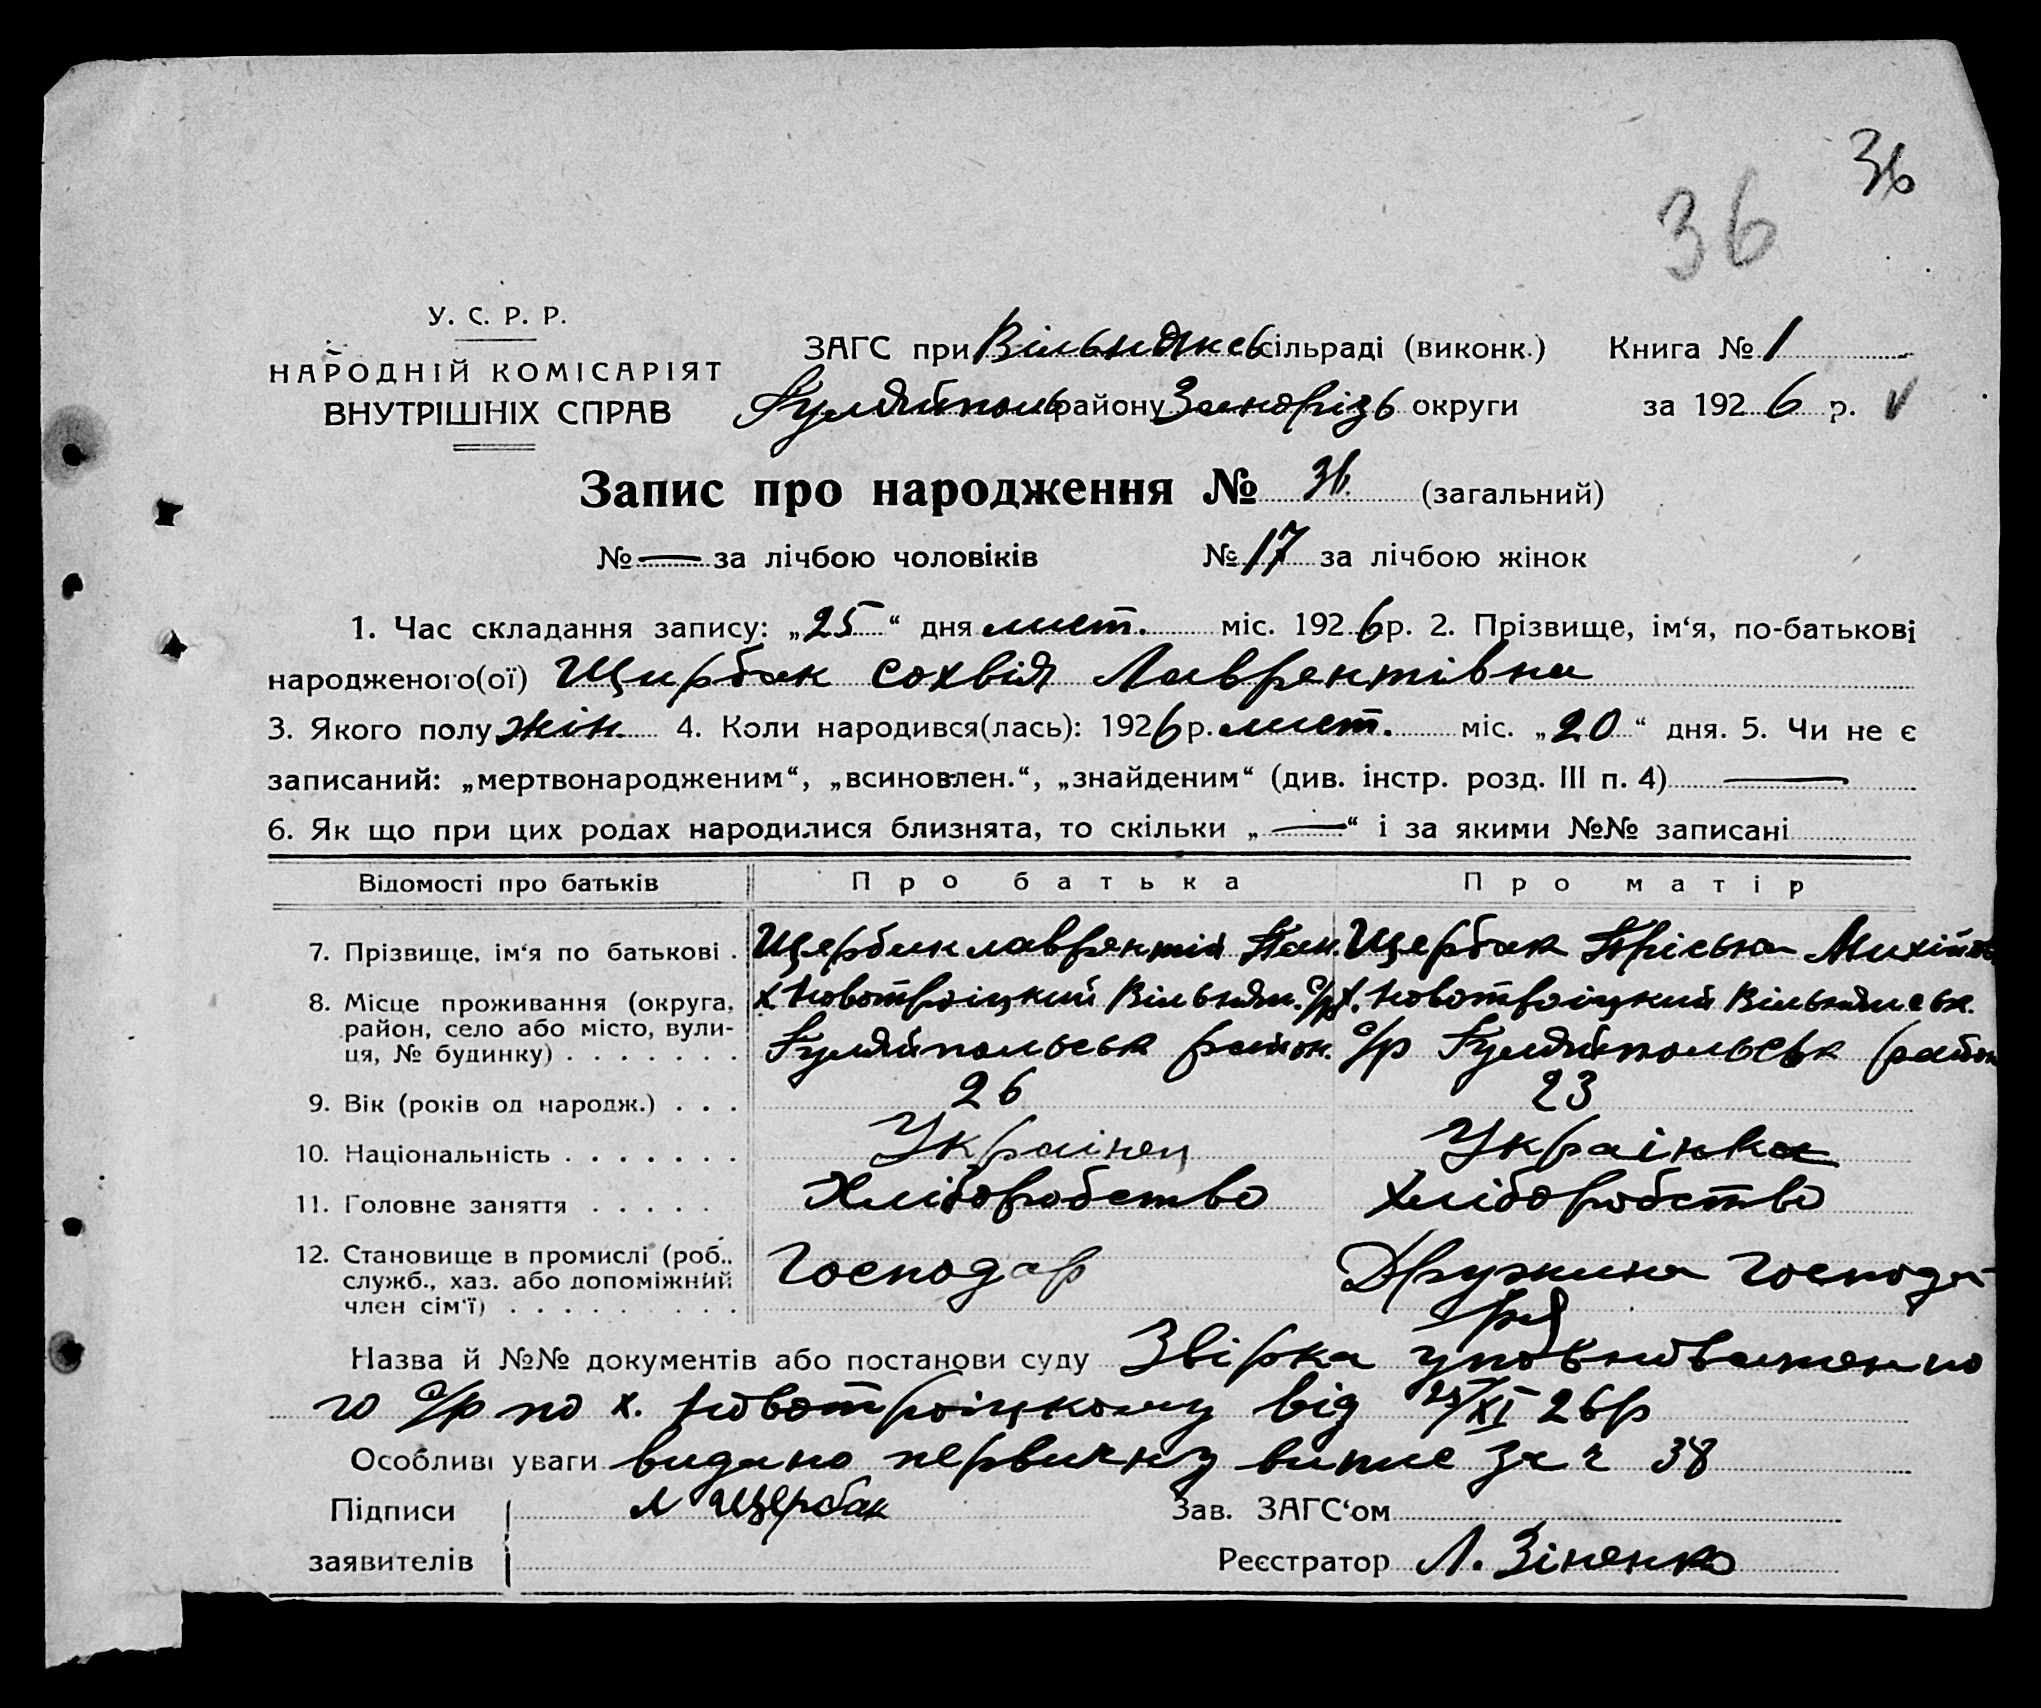 36
36
У. С. Р. Р.
НАРОДНІЙ КОМІСАРІЯТ
ВНУТРІШНІХ СПРАВ
ЗАГС при Вільнянськ сільраді (виконк.) Книга № 1
Гуляйполь району Запорізь округи за 192 6 р.
Запис про народження № 36. (загальний)
№ — за лічбою чоловіків № 17 за лічбою жінок
1. Час складання запису: „25“ дня лист. міс. 192 6 р. 2. Прізвище, ім‘я, по-батькові
народженого(ої) Щирбак Сохвія Лаврентівна
3. Якого полу жін. 4. Коли народився(лась): 192 6 р. лист. міс. „20“ дня. 5. Чи не є
записаний: „мертвонародженим“, „всиновлен.“, „знайденим“ (див. інстр. розд. III п. 4) —
6. Як що при цих родах народилися близнята, то скільки „—“ і за якими №№ записані
Відомості про батьків Про батька Про матір
7. Прізвище, ім‘я по батькові . Щербак Лаврентій Пан. Щербак Пріська Михійов
8. Місце проживання (округа, х Новотроіцкий Вільнян. с/р х. Новотроіцкий Вільнянськ.
район, село або місто, вули-
ця, № будинку) . . . . . . . Гуляйпольськ район. с/р Гуляйпольськ район
9. Вік (років од народж.) . . . 26 23
10. Національність . . . . . . . Украінец Украінка
11. Головне заняття . . . . . Хліборобство Хліборобство
12. Становище в промислі (роб.. Господар Дружина Господа-
служб., хаз. або допоміжний
член сім‘ї) . . . . . . . . . ря
Назва й №№ документів або постанови суду Звірка уповноваженно
го с/р по х. Новотроіцкому від 25/XI 26р
Особливі уваги видано первичну випис за ч 38
Підписи Л Щербак Зав. ЗАГС‘ом
заявителів Реєстратор Л. Зіненко